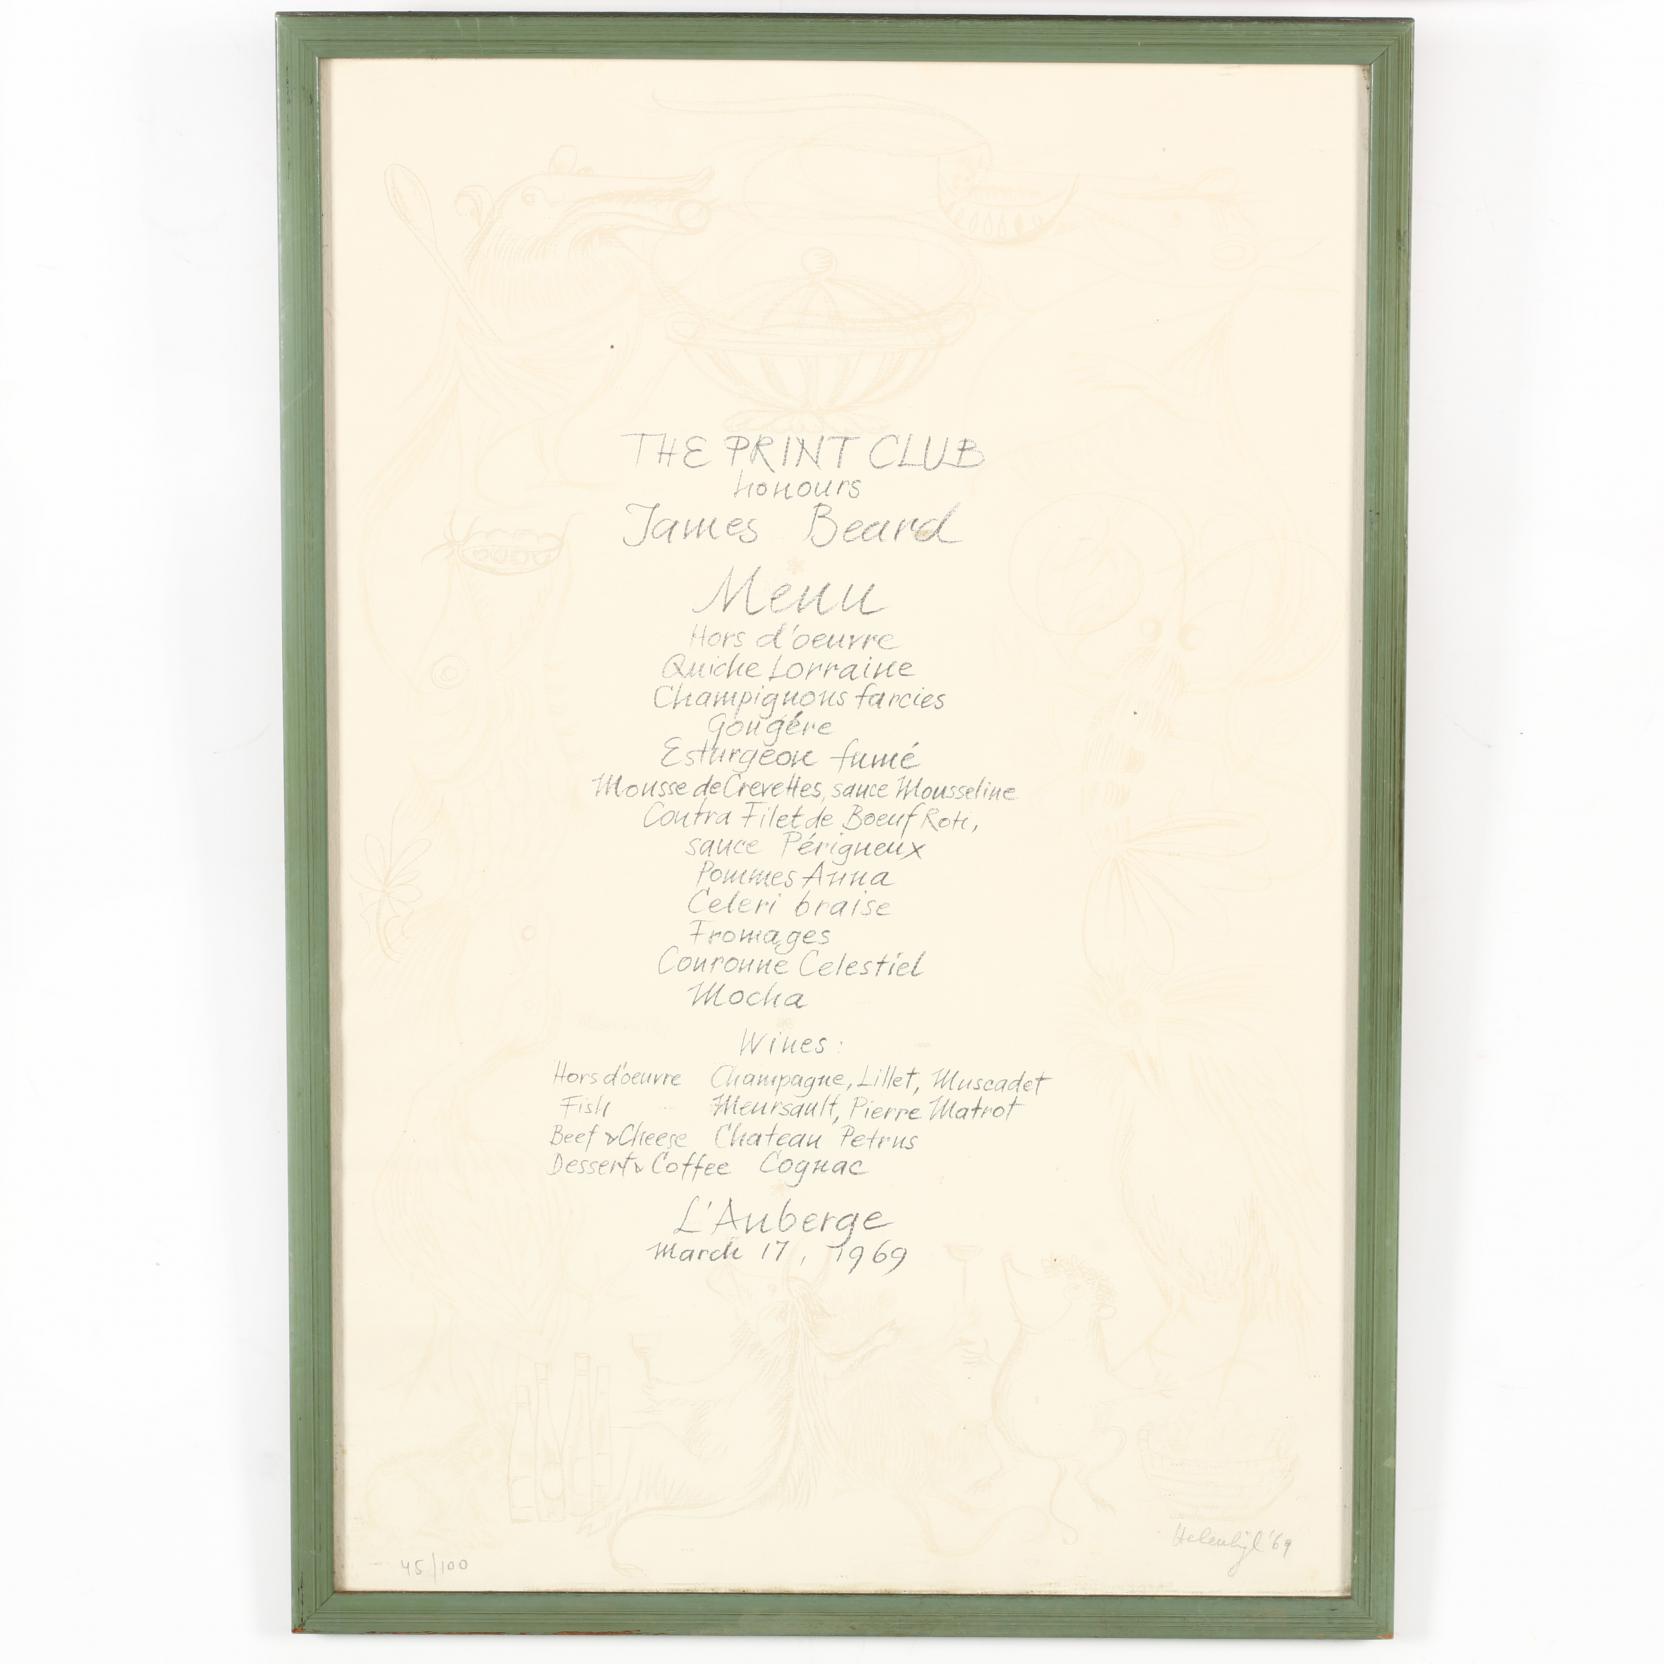 THE PRINT CLUB
honours
James Beard
Menu
Hors d'oeuvre
Quiche Lorraine
Champignons farcies
Gougére
Esturgeon fumé
Mousse de Crevettes, sauce Mousseline
Contra Filet de Boeuf Roti,
sauce Périgneux
Pommes Anna
Celeri braise
Fromages
Couronne Celestiel
Mocha
Wines:
Hors d'oeuvre Champagne, Lillet, Muscadet
Fish Meursault, Pierre Matrot
Beef & Cheese Chateau Petrus
Dessert & Coffee Cognac
L'Auberge
March 17, 1969
45/100 '69